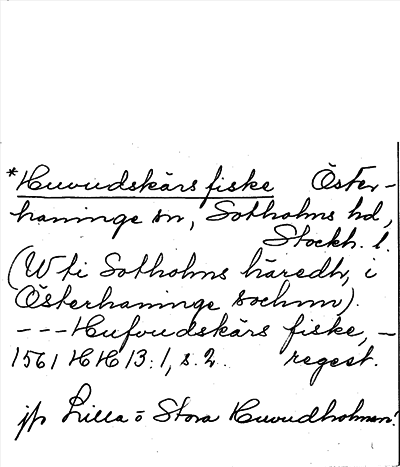 *Huvudskärs fiske Öster-
haninge sn, Sotholms hd,
Stockh. l.
(W fi Sotholms häredh, i
Österhaninge sochnn).
--- Hufvudskärs fiske, -
1561 HH 13:1, s. 2. regest.
jfr Lilla o Stora Huvudholmen!